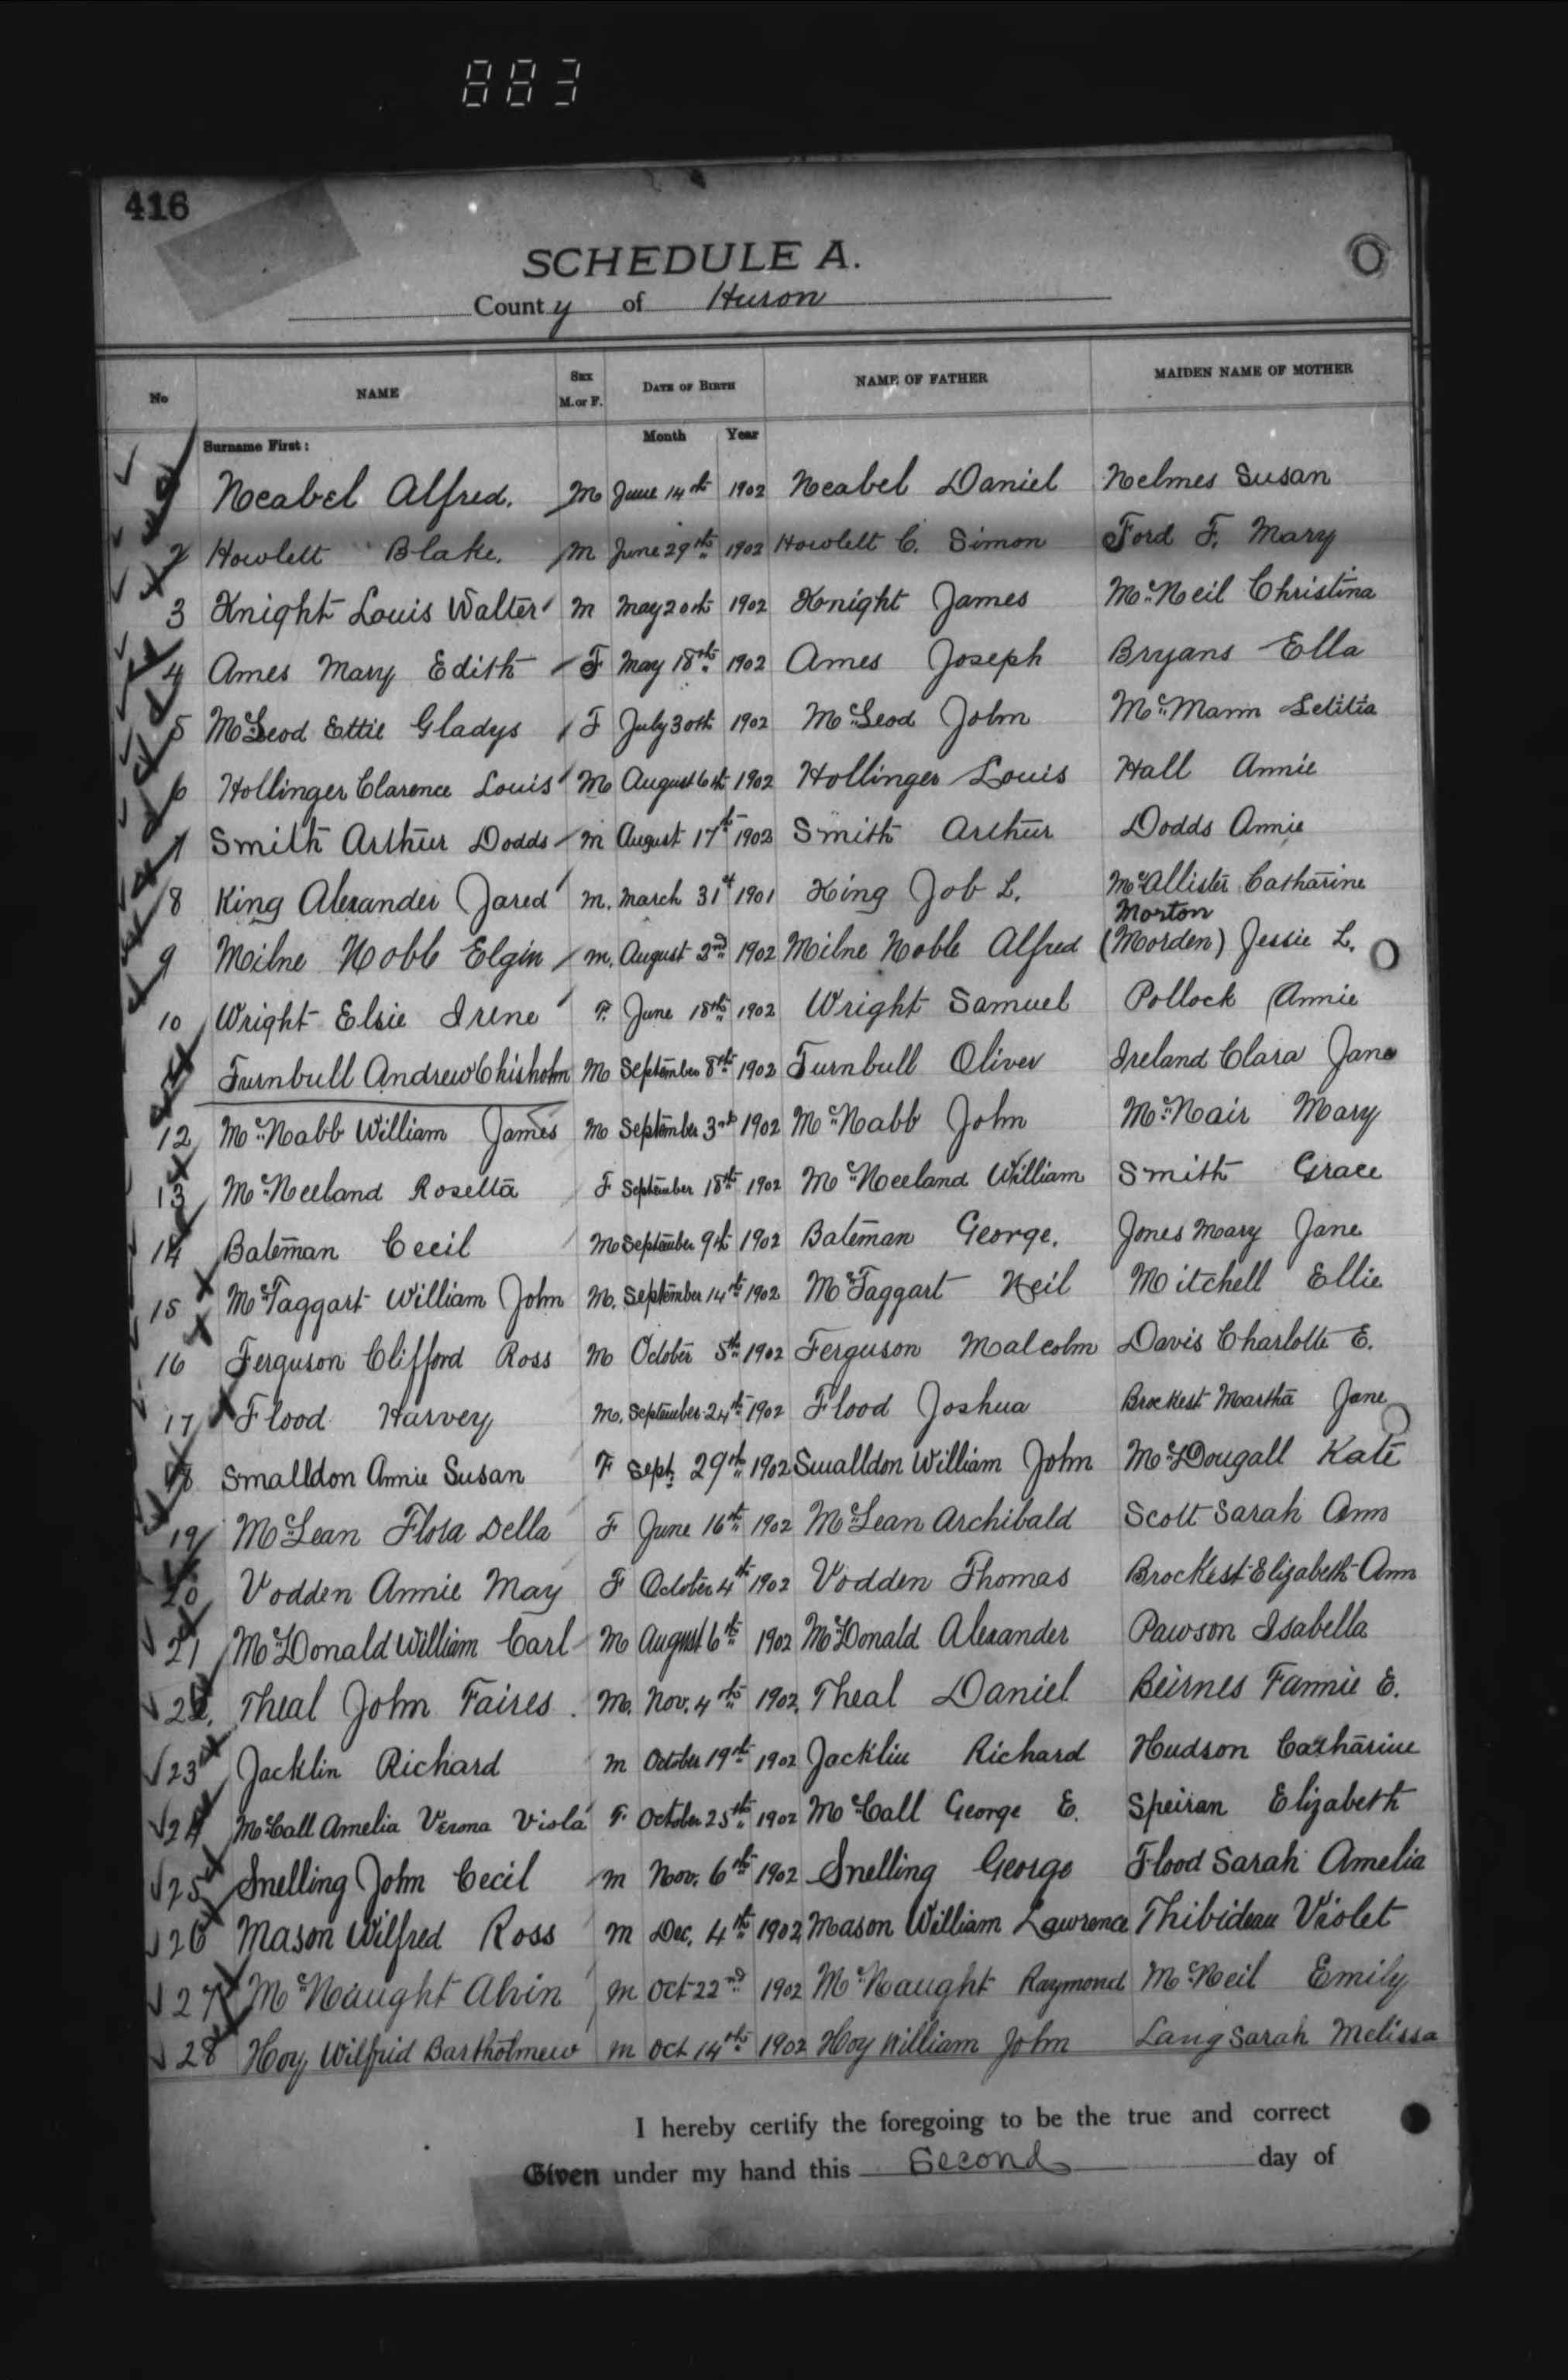 883
416
SCHEDULE A.
County of Huron
No NAME Sex M. or F. Date of Birth NAME OF FATHER MAIDEN NAME OF MOTHER
Surname First: Month Year
1 Neabel Alfred. M June 14th 1902 Neabel Daniel Nelmes Susan
2 Howlett Blake. M June 29th 1902 Howlett C. Simon Ford F. Mary
3 Knight Louis Walter M May 20th 1902 Knight James McNeil Christina
4 Ames Mary Edith F May 18th 1902 Ames Joseph Bryans Ella
5 McLeod Ettie Gladys F July 30th 1902 McLeod John McMann Letitia
6 Hollinger Clarence Louis M August 6th 1902 Hollinger Louis Hall Annie
7 Smith Arthur Dodds M August 17th 1902 Smith Arthur Dodds Annie
8 King Alexander Jared M. March 31st 1901 King Job L. McAllister Catharine
Morton
9 Milne Noble Elgin M. August 2nd 1902 Milne Noble Alfred (Morden) Jessie L.
10 Wright Elsie Irene F. June 18th 1902 Wright Samuel Pollock Annie
Turnbull Andrew Chisholm M September 8th 1902 Turnbull Oliver Ireland Clara Jane
12 McNabb William James M September 3rd 1902 McNabb John McNair Mary
13 McNeeland Rosetta F September 18th 1902 McNeeland William Smith Grace
14 Bateman Cecil M September 9th 1902 Bateman George. Jones Mary Jane
15 McTaggart William John M. September 14th 1902 McTaggart Neil Mitchell Ellie
16 Ferguson Clifford Ross M October 5th 1902 Ferguson Malcolm Davis Charlotte E.
17 Flood Harvey M. September 24th 1902 Flood Joshua Brockest Martha Jane
18 Smalldon Annie Susan F Sept 29th 1902 Smalldon William John McDougall Kate
19 McLean Flora Della F June 16th 1902 McLean Archibald Scott Sarah Ann
20 Vodden Annie May F October 4th 1902 Vodden Thomas Brockest Elizabeth Ann
21 McDonald William Carl M August 6th 1902 McDonald Alexander Pawson Isabella
22. Theal John Faires. M. Nov. 4th 1902. Theal Daniel Beirnes Fannie E.
23 Jacklin Richard M October 19th 1902 Jacklin Richard Hudson Catharine
24 McCall Amelia Verona Viola F. October 25th 1902 McCall George E. Speiran Elizabeth
25 Snelling John Cecil M Nov. 6th 1902 Snelling George Flood Sarah Amelia
26 Mason Wilfred Ross M Dec. 4th 1902 Mason William Lawrence Thibideau Violet
27 McNaught Alvin M Oct 22nd 1902 McNaught Raymond McNeil Emily
28 Hoy Wilfrid Bartholmew M Oct 14th 1902 Hoy William John Lang Sarah Melissa
I hereby certify the foregoing to be the true and correct
Given under my hand this Second day of